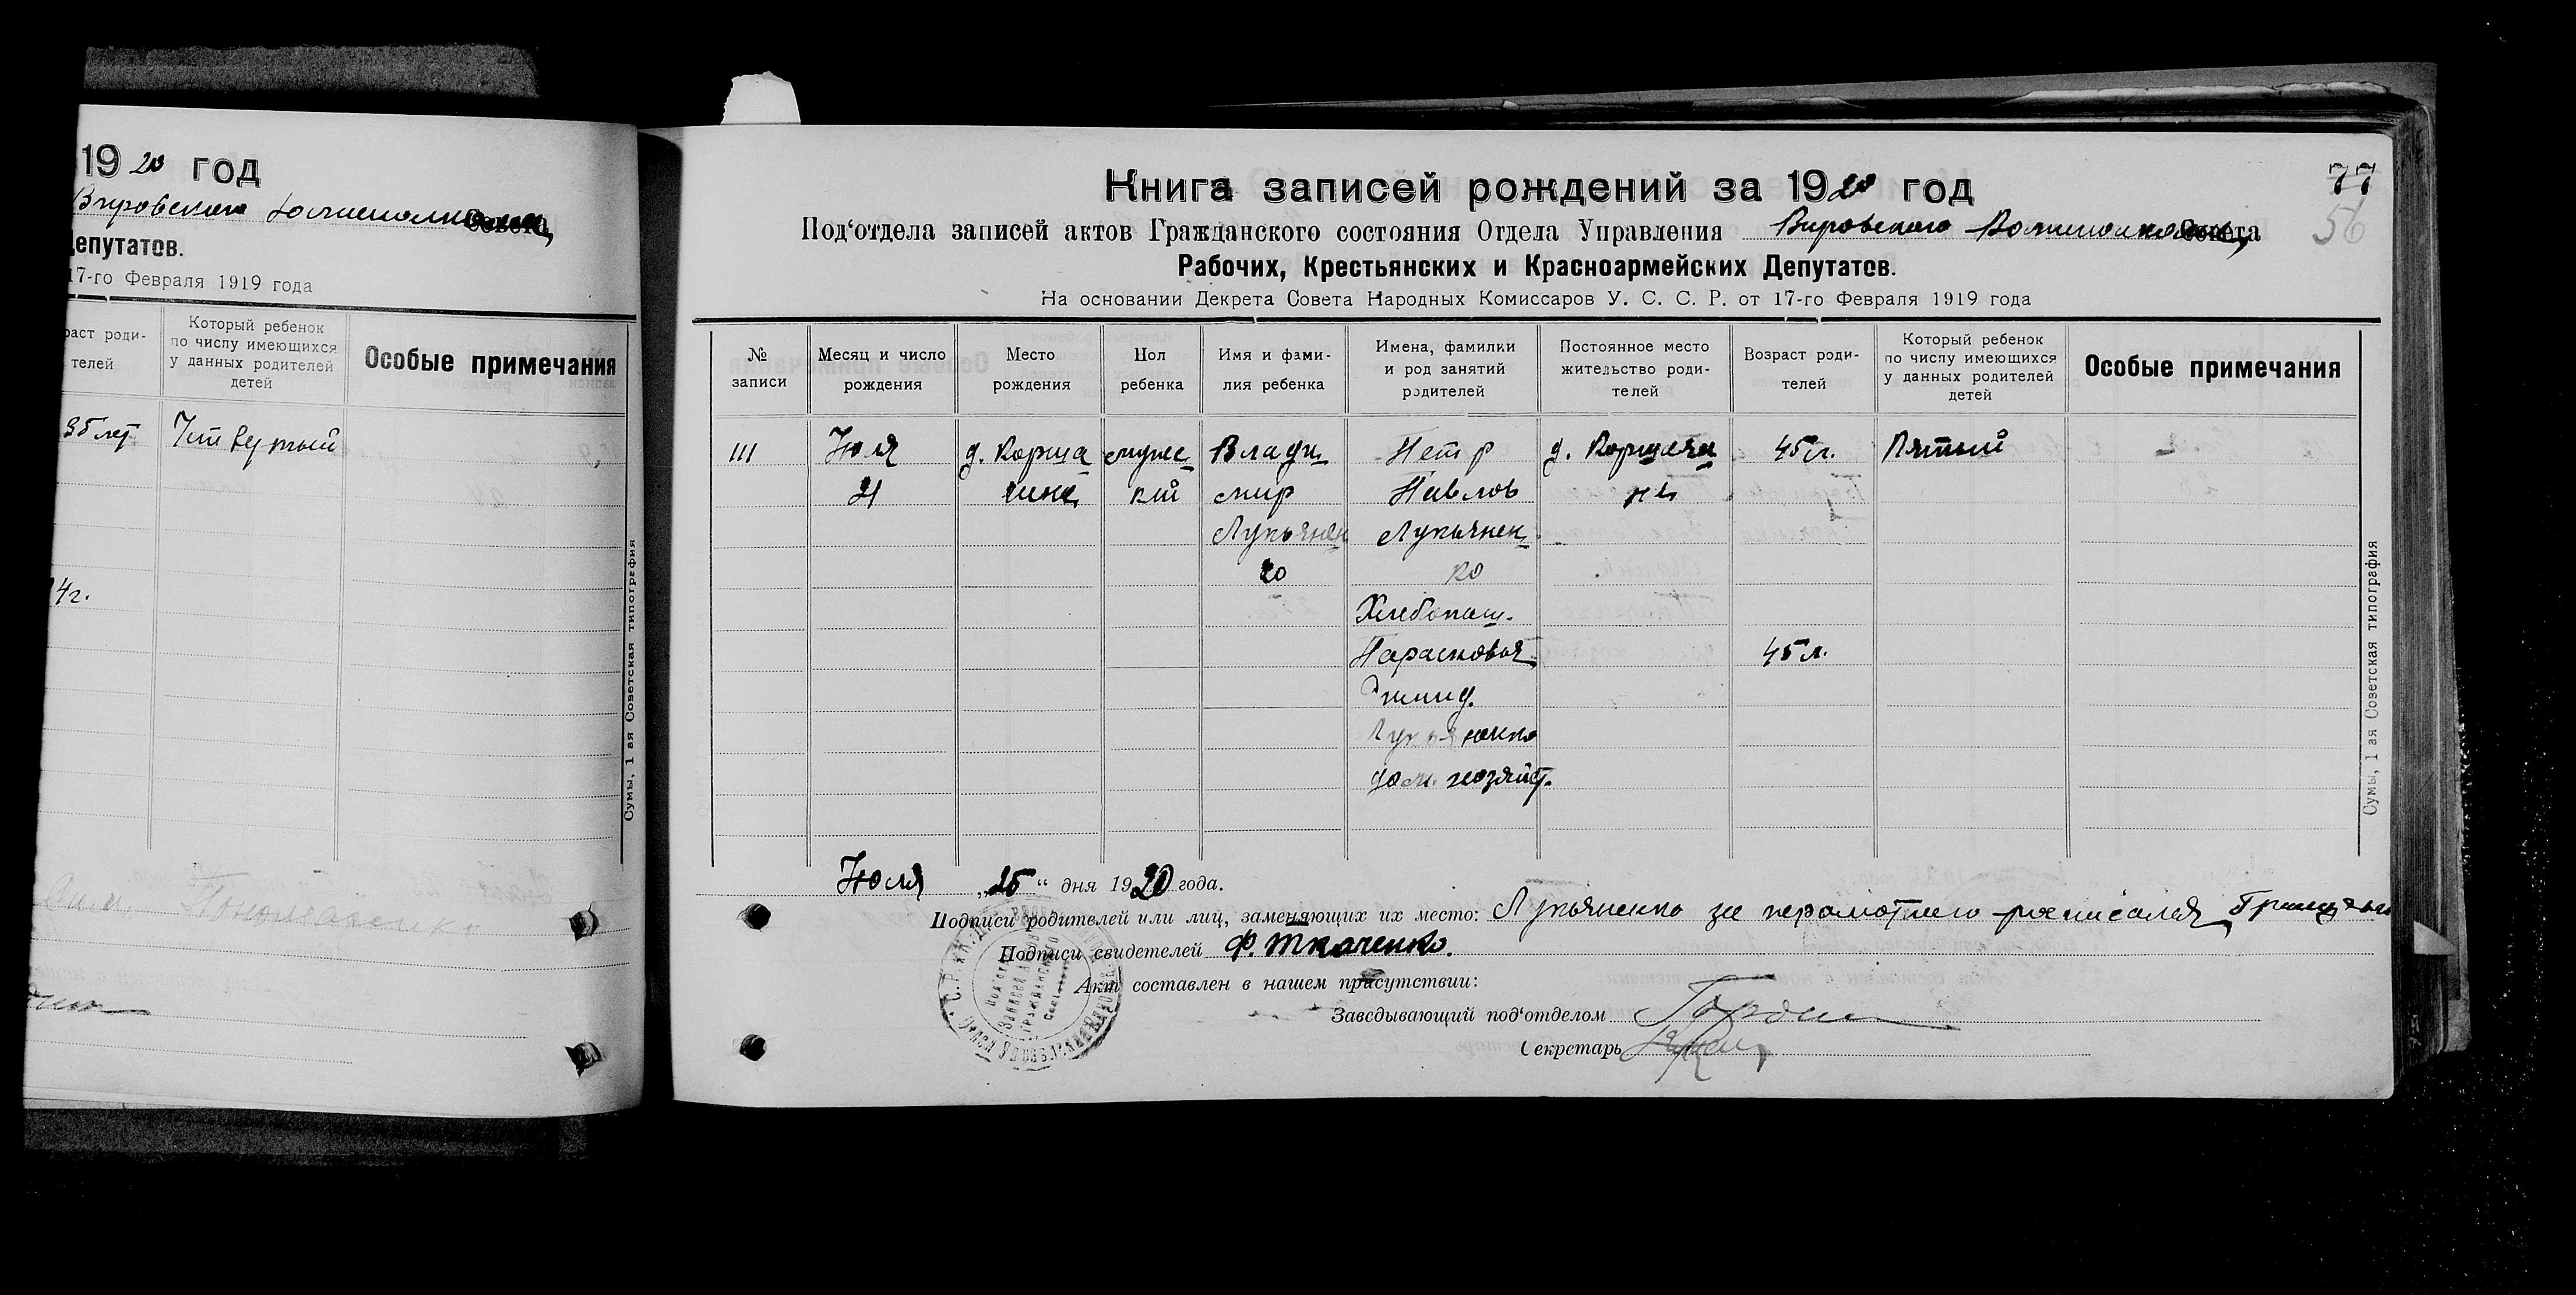 1920 год
Вировского
Депутатов.
17-го Февраля 1919 года
раст роди-
телей
Который ребенок
по числу имеющихся
у данных родителей
детей
Особые примечания
35 лет
4г.
Сумы, 1 ая Советская типография
77
56
Книга записей рождений за 1920 год
Под‘отдела записей актов Гражданского состояния Отдела Управления Вировского Совета
Рабочих, Крестьянских и Красноармейских Депутатов.
На основании Декрета Совета Народных Комиссаров У. С. С. Р. от 17-го Февраля 1919 года
№
записи
Месяц и число
рождения
Место
рождения
Пол
ребенка
Имя и фами-
лия ребенка
Имена, фамилии
и род занятий
родителей
Постоянное место
жительство роди-
телей
Возраст роди-
телей
Который ребенок
по числу имеющихся
у данных родителей
детей
Особые примечания
111
Июля
д. Корща
мужс
кий
Влади
мир
Лукьянен
ко
Петр
Павлов
Лукьянен
ко
Хлебопаш.
Парасковья
Лукьяненко
дом. хозяйст.
45 л.
45 л.
Пятый
Сумы, 1 ая Советская типография
Июля „25“ дня 1920 года.
Подписи родителей или лиц, заменяющих их место: Лукьяненко за расписался
Подписи свидетелей Ф. Ткаченко.
Акт составлен в нашем присутствии:
Заведывающий под‘отделом
Секретарь